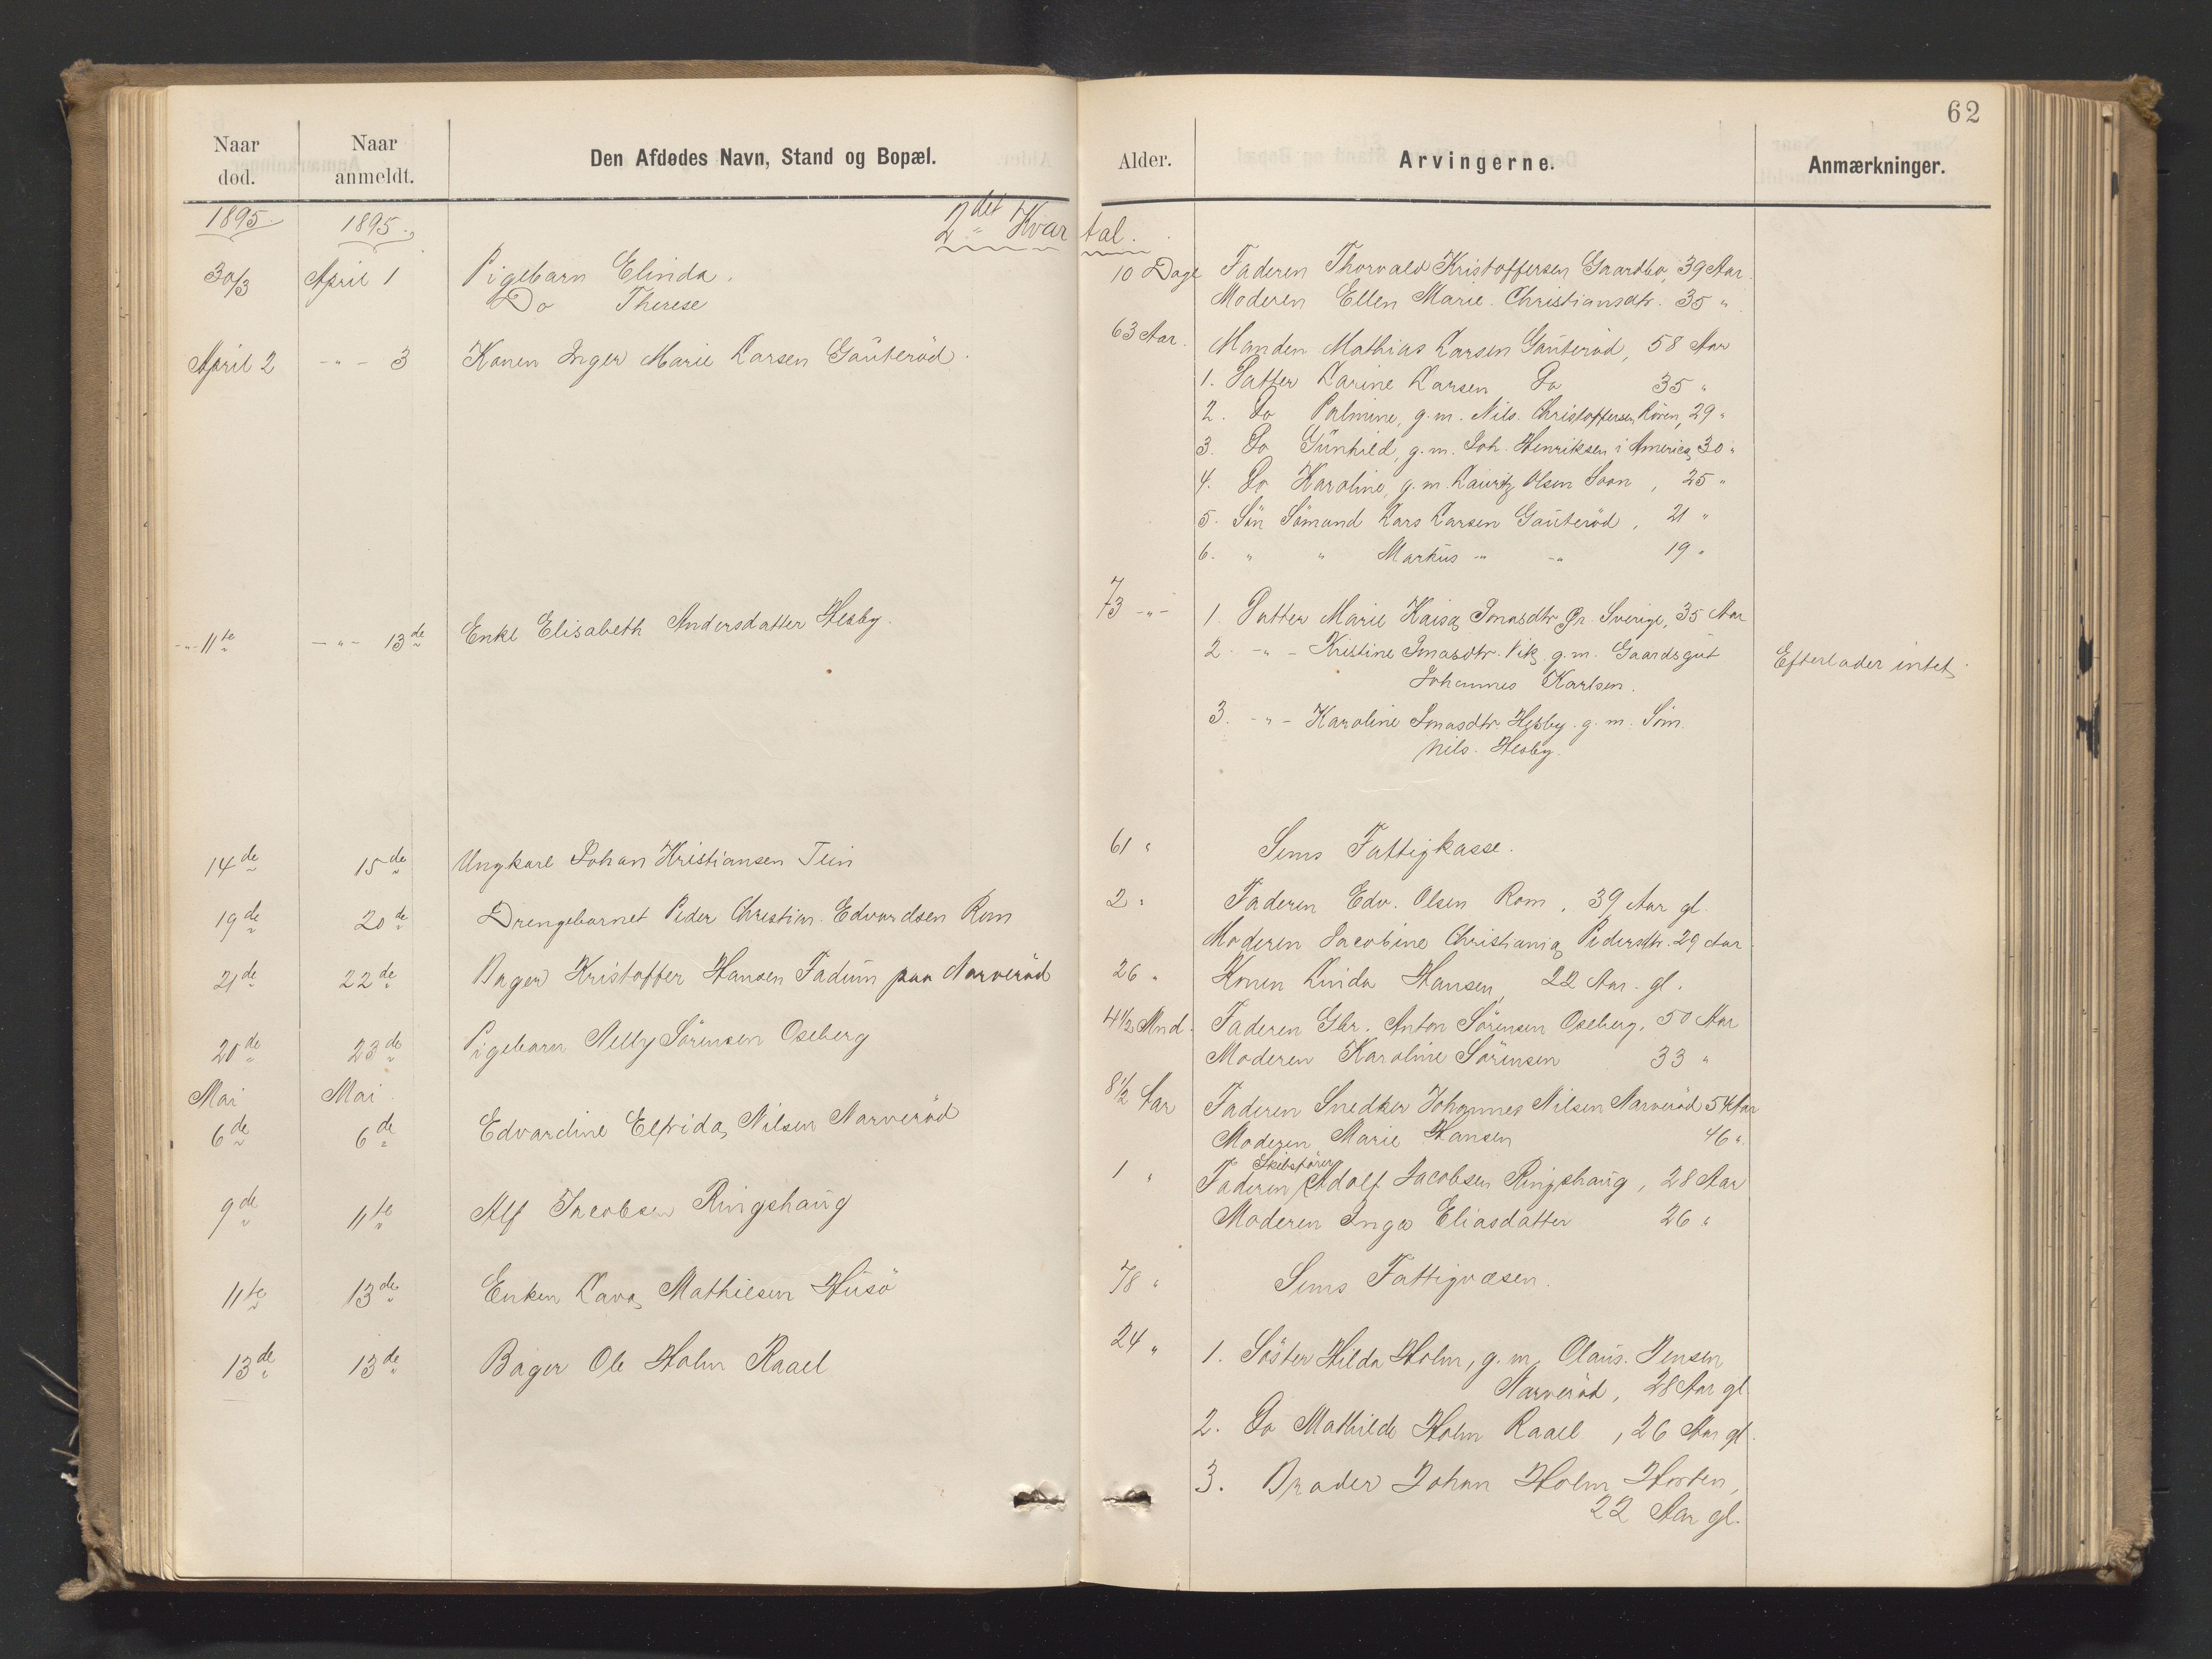 62
Naar død.
Naar anmeldt.
Den Afdødes Navn, Stand og Bopæl.
Alder.
Arvingerne.
Anmærkninger.
1895. 1895.
2det Kvartal.
30/3 April 1 Pigebarn Elinda. 10 Dage Faderen Thorvald Kristoffersen Gaardbo, 39 Aar.
Do Therese Moderen Ellen Marie Christiansdtr. 35 "
April 2 - " - 3 Konen Inger Marie Larsen Gauterød. 63 Aar. Manden Mathias Larsen Gauterød, 58 Aar
1. Datter Karine Larsen Do 35 "
2. Do Palmine, g. m. Nils Christoffersen Røren, 29 "
3. Do Gunhild, g. m. Joh. Henriksen i America, 30 "
4. Do Karoline, g. m. Lauritz Olsen Soon, 25 "
5. Søn Sømand Lars Larsen Gauterød, 21 "
6. " " Markus - " - - " - 19 "
- " - 11te - " - 13de Enke Elisabeth Andersdatter Hesby. 73 - " - 1. Datter Marie Kaisa Jonasdtr Sverige, 35 Aar
2. - " - Kristine Jonasdtr. Vik, g. m. Gaardsgut
Johannes Karlsen.
Efterlader intet.
3. - " - Karoline Jonasdtr. Hesby. g. m. Søm.
Nils. Hesby.
14de 15de Ungkarl Johan Kristiansen Tein 61 " Sems Fattigkasse.
19de 20de Drengebarnet Peder Christian Edvardsen Rom 2 " Faderen Edv. Olsen Rom, 39 Aar gl.
Moderen Jacobine Christiania Pedersdtr. 29 Aar
21de 22de Bager Kristoffer Hansen Fadum paa Narverød 26 " Konen Linda Hansen, 22 Aar gl.
20de 23de Pigebarn Nelly Sørensen Oseberg 4 1/2 Mnd. Faderen Gbr. Anton Sørensen Oseberg, 50 Aar
Moderen Karoline Sørensen 33 "
Mai Mai
6de 6de Edvardine Elfrida Nilsen Narverød 8 1/2 Aar Faderen Snedker Johannes Nilsen Narverød 54 Aar
Moderen Marie Hansen 46 "
9de 11te Alf Jacobsen Ringshaug 1 " Faderen Skibsfører Adolf Jacobsen Ringshaug, 28 Aar
Moderen Inga Eliasdatter 26 "
11te 13de Enken Lava Mathisen Husø 78 " Sems Fattigvæsen.
13de 13de Bager Ole Holm Raael 24 " 1. Søster Hilda Holm, g. m. Olaus Jensen
Narverød, 28 Aar gl.
2. Do Mathilde Holm Raael, 26 Aar gl.
3. Broder Johan Holm Horten,
22 Aar gl.